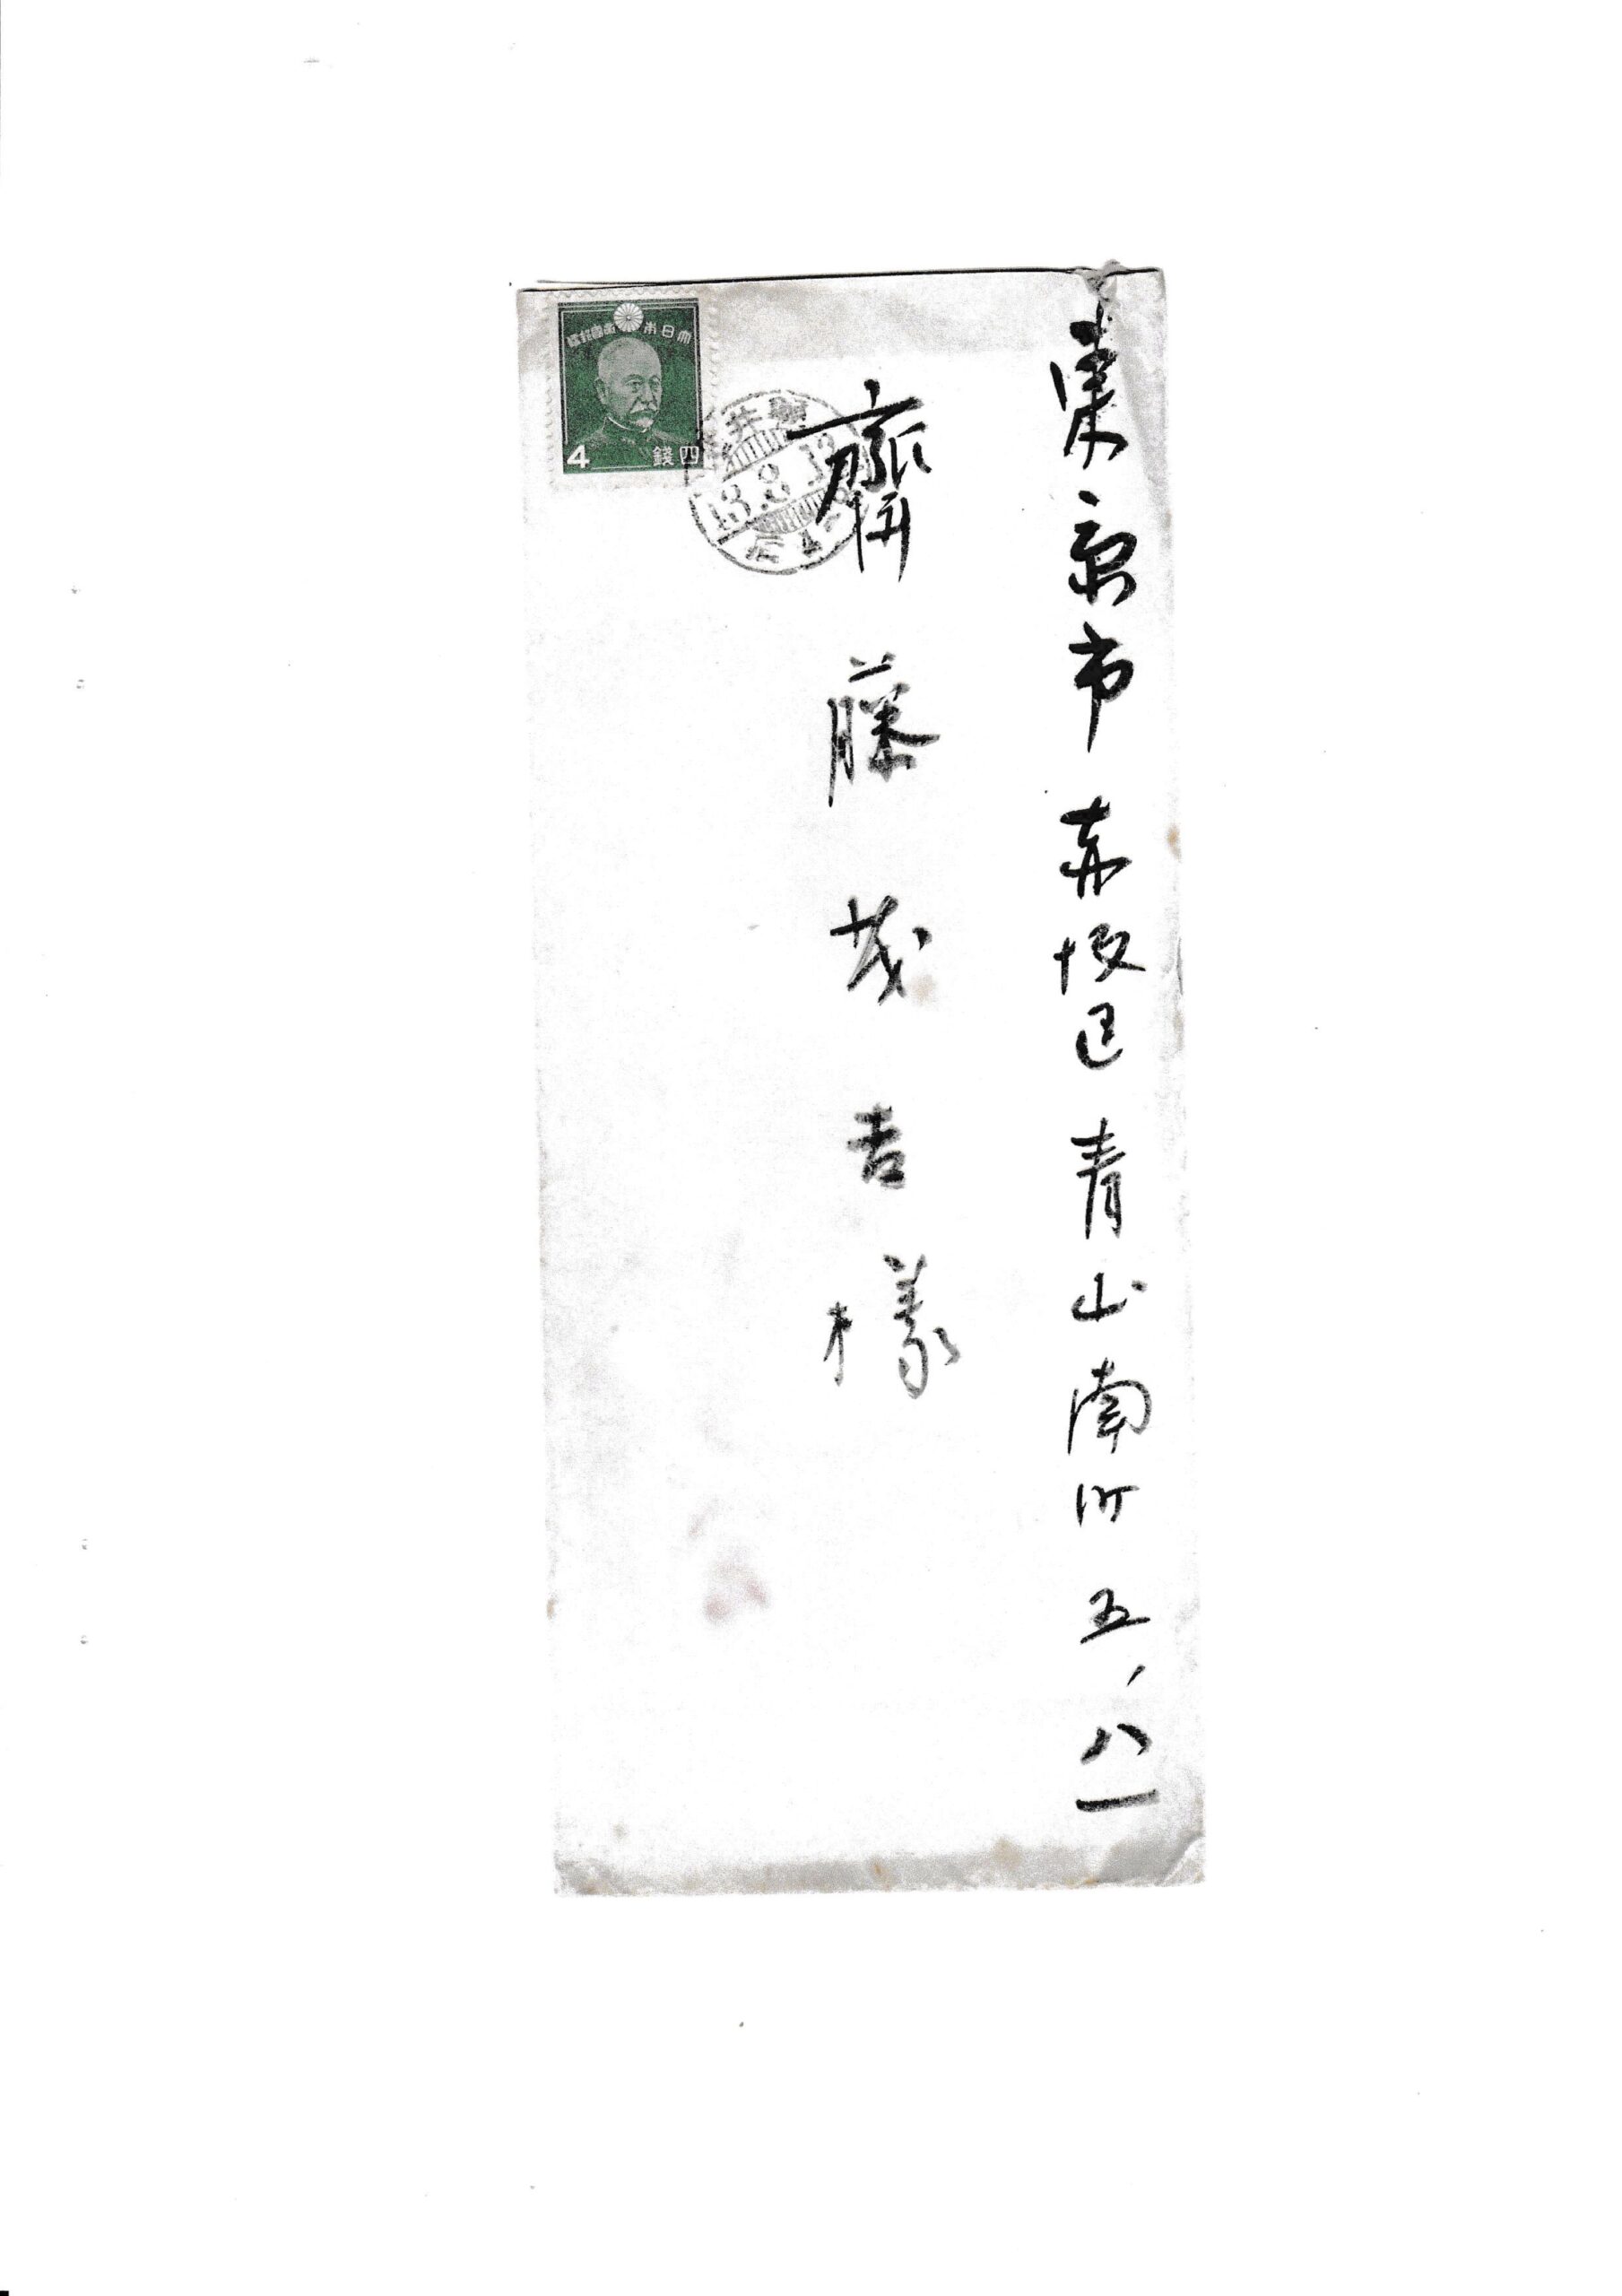 東京市赤坂区青山南町五、八一
齋藤茂吉様
大日本帝國郵便
4 四錢
13.8.12